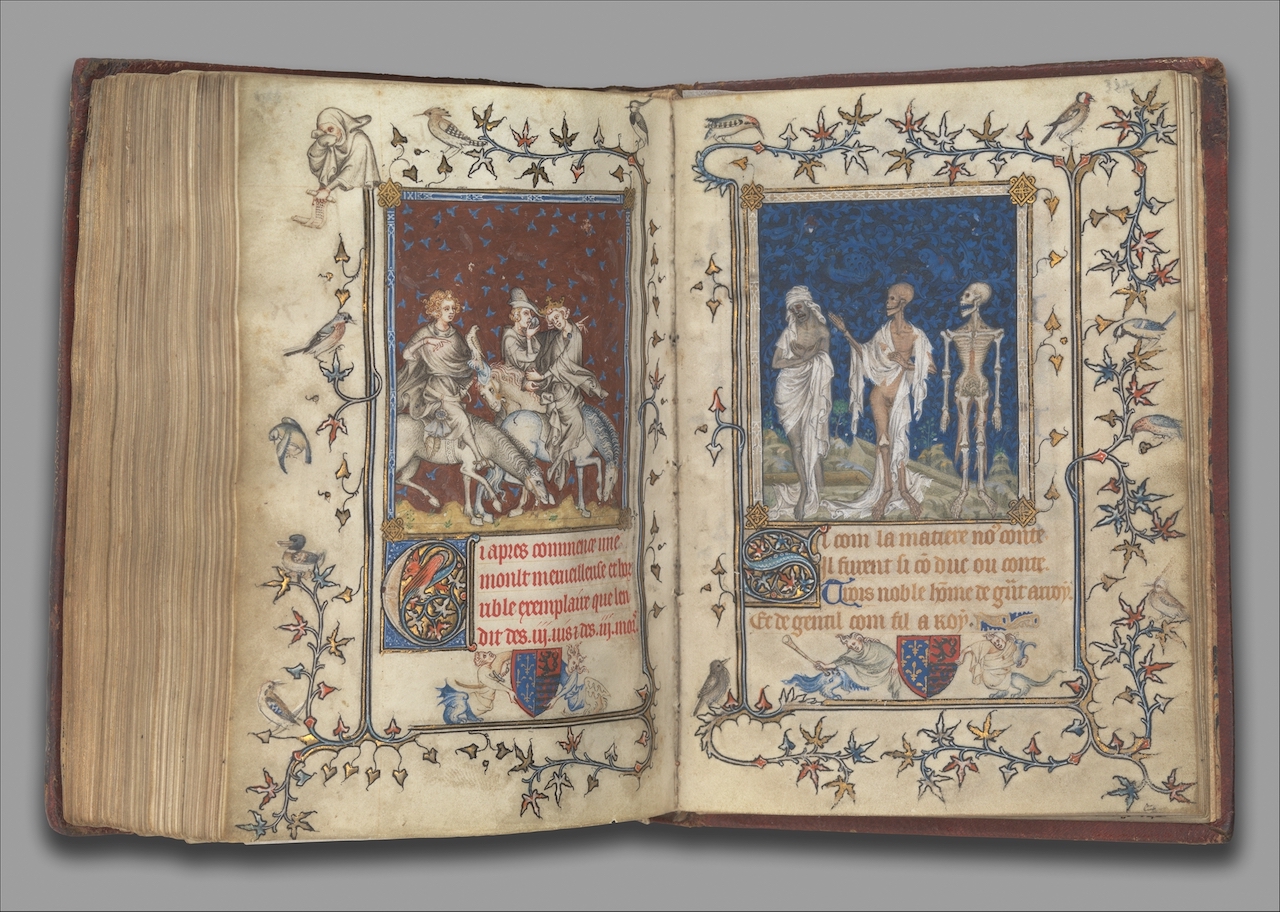 Ci apres commence une
moult merueilleuse et hor
rible exemplaire que len
dit des .iij. uis ⁊ des .iij. mors
Si com la matiere no⁹ conte
Il furent si cō duc ou conte.
Trois noble hōme de g̃nt arroy.
Et de gentil com fil a roy.